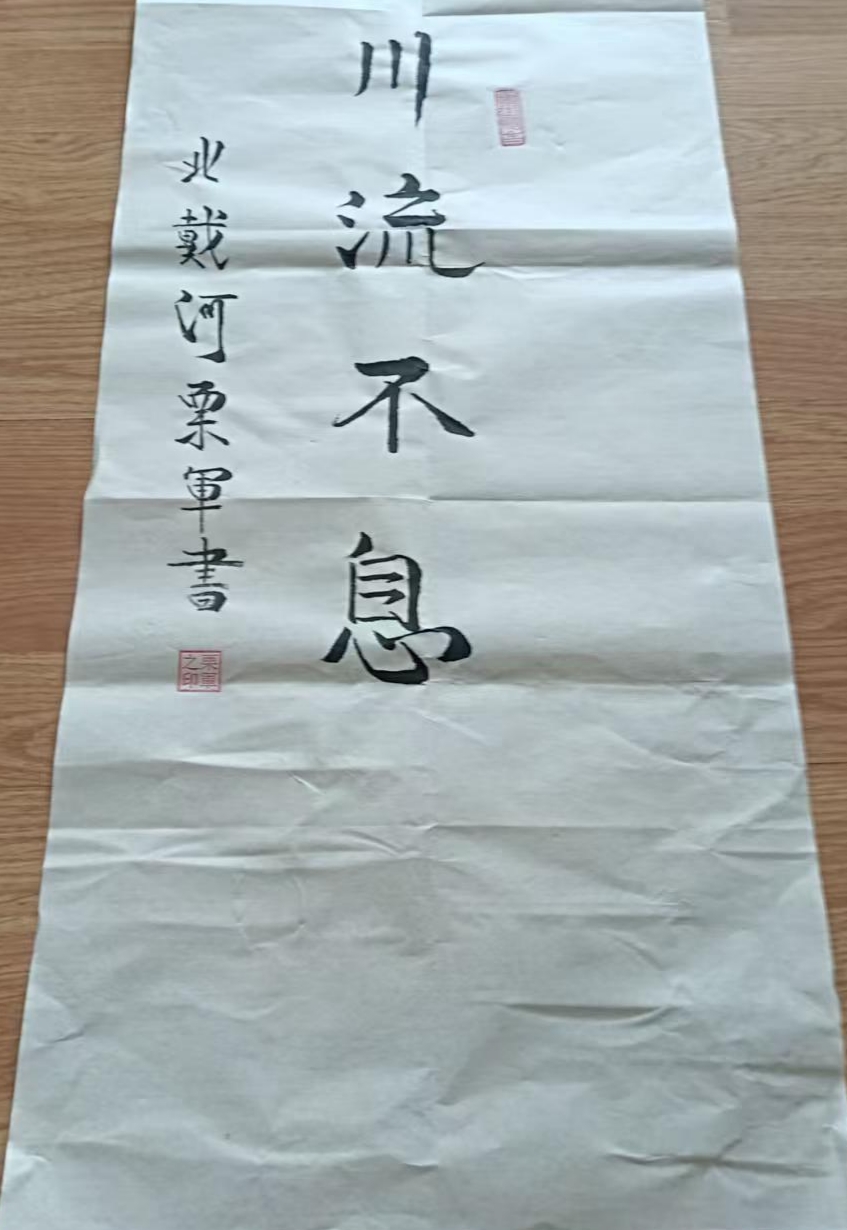 川流不息
北戴河栗軍書
栗軍之印